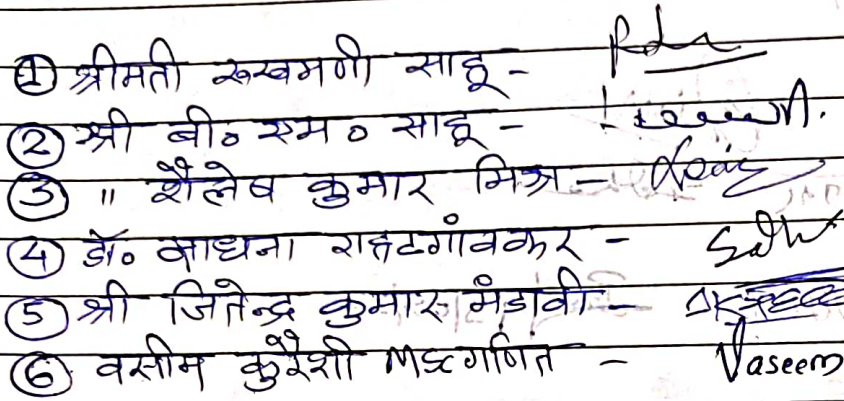 ① श्रीमती रूखमणी साहू -
② श्री बी० एम० साहू -
③ " शैलेष कुमार मिश्र -
④ डॉ० साधना राहटगांवकर -
⑤ श्री जितेन्द्र कुमार मंडावी -
⑥ वसीम कुरैशी MSC गणित - Vaseem